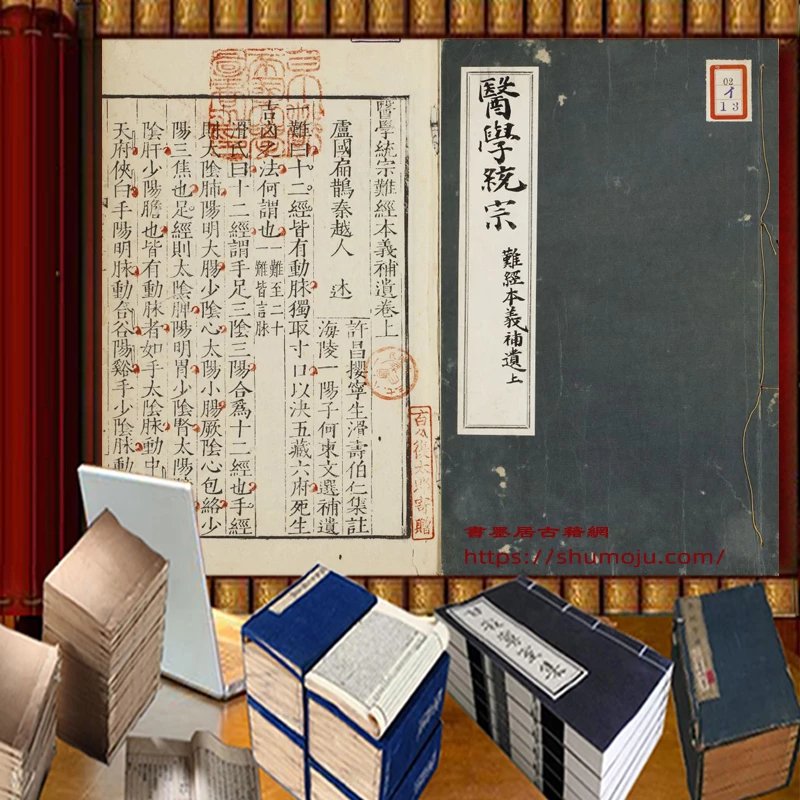 醫學統宗難經本義補遺卷上
盧國扁鵲秦越人 述
許昌攖寧生滑壽伯仁集註
海陵一陽子何柬文選補遺
難曰十二經皆有動脉獨取寸口以决五藏六府死生
吉凶之法何謂也 一難至二十
一難皆言脉
滑氏曰十二經謂手足三陰三陽合爲十二經也手經
則太陰肺陽明大腸少陰心太陽小腸厥陰心包絡少
陽三焦也足經則太陰脾陽明胃少陰腎太陽
陰肝少陽膽也皆有動脉者如手太陰脉動中
天府俠白手陽明脉動合谷陽谿手少陰脉動
醫學統宗
難經本義補遺 上
02
1
13
書墨居古籍網
https://shumoju.com/